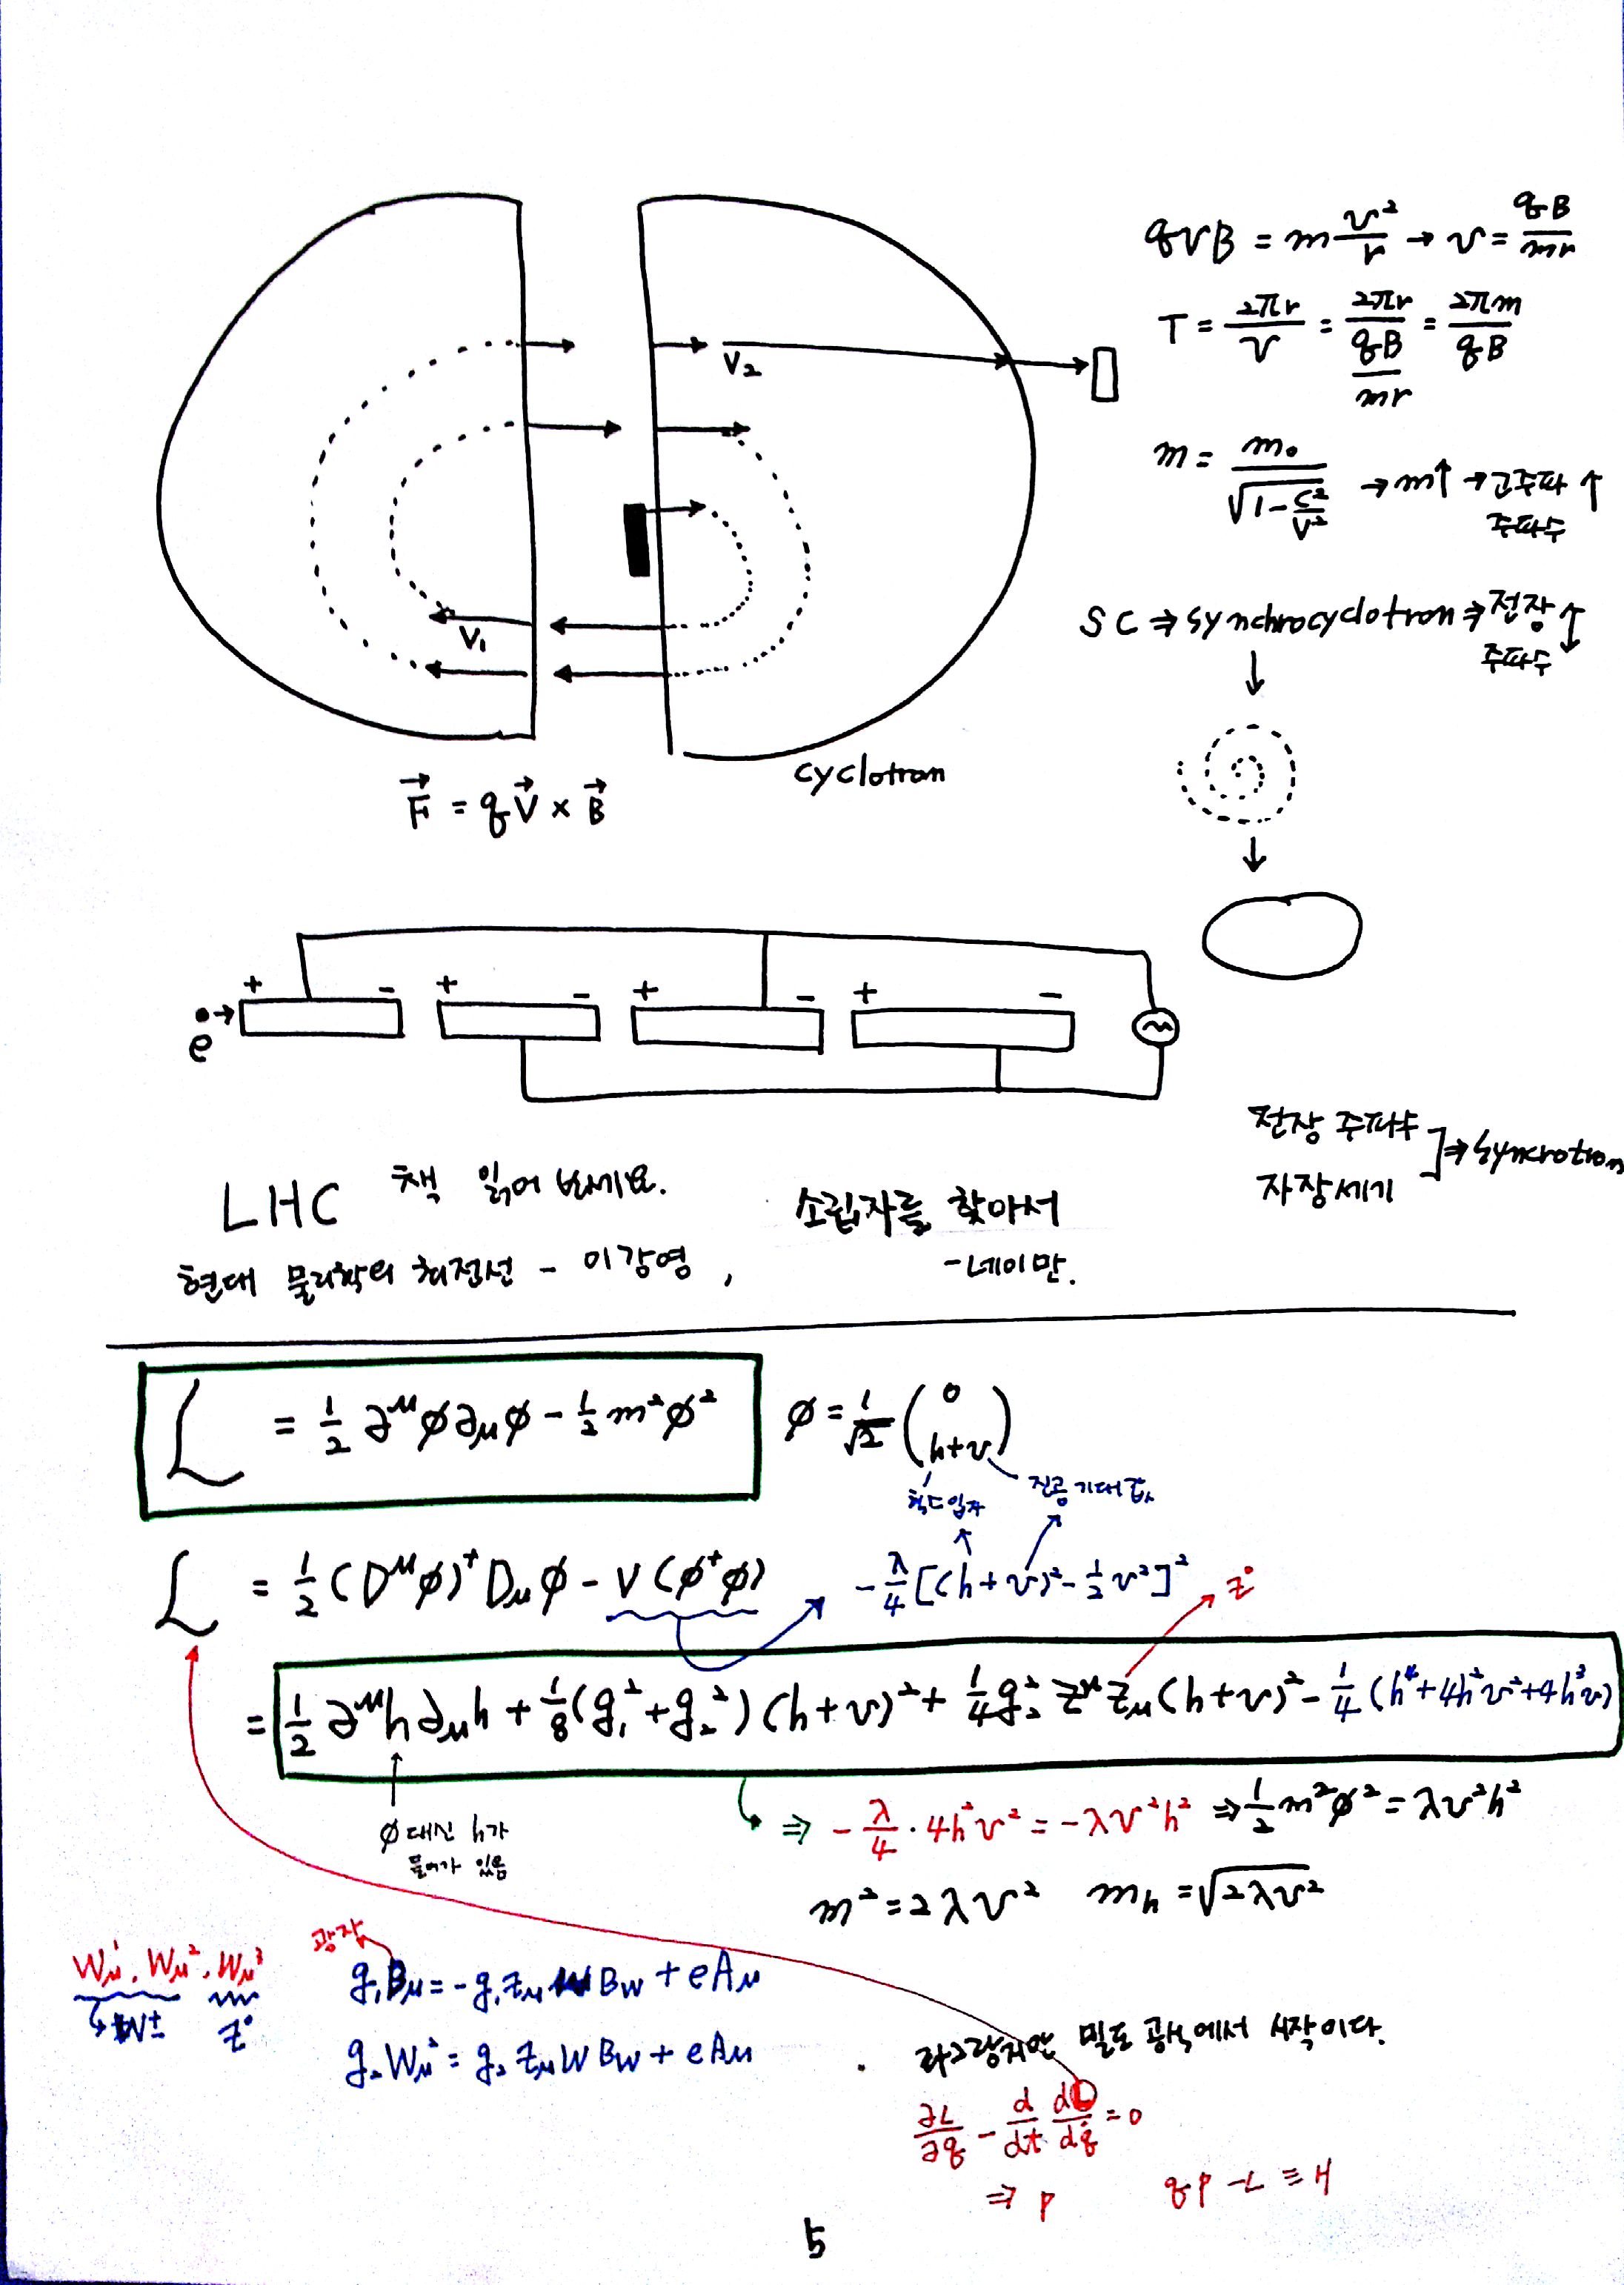 qVB = m v²/r → v = qB/mr
T = 2πr/v = 2πr/(qB/mr) = 2πm/qB
V₂
m = m₀/√(1-C²/V²) → m↑ → 고주파 ↑
주파수
V₁
SC ⇒ synchrocyclotron ⇒ 전장 ↕
주파수
cyclotron
F⃗ = qV⃗ × B⃗
+ - + - + - + -
e
전장 주파수
자장세기 ] ⇒ syncrotron
LHC 책 읽어 보세요.
소립자를 찾아서
현대 물리학의 최전선 - 이강영,
- 네이만.
L = ½ ∂^μ φ ∂_μ φ - ½ m² φ²
φ = 1/√2 (0 h+v)
힉드입자
진공기대값
L = ½ (D^μ φ)⁺ D_μ φ - V(φ⁺φ)
-λ/4 [(h+v)² - ½ v²]²
Z°
= ½ ∂^μ h ∂_μ h + ⅛ (g₁² + g₂²)(h+v)² + ¼ g₂² Z^μ Z_μ (h+v)² - ¼ (h⁴ + 4h²v² + 4h³v)
φ 대신 h가
들어가 있음
⇒ -λ/4 · 4h²v² = -λv²h² ⇒ ½ m² φ² = λv²h²
m² = 2λv² m_h = √(2λv²)
W_μ¹, W_μ², W_μ³
W± Z°
광자
g₁B_μ = -g₁Z_μ W B_W + eA_μ
g₂W_μ³ = g₂ Z_μ W B_W + eA_μ
. 라그랑지안 밀도 공식에서 시작이다.
∂L/∂q - d/dt dL/dq̇ = 0
⇒ p
qp - L ≡ H
5